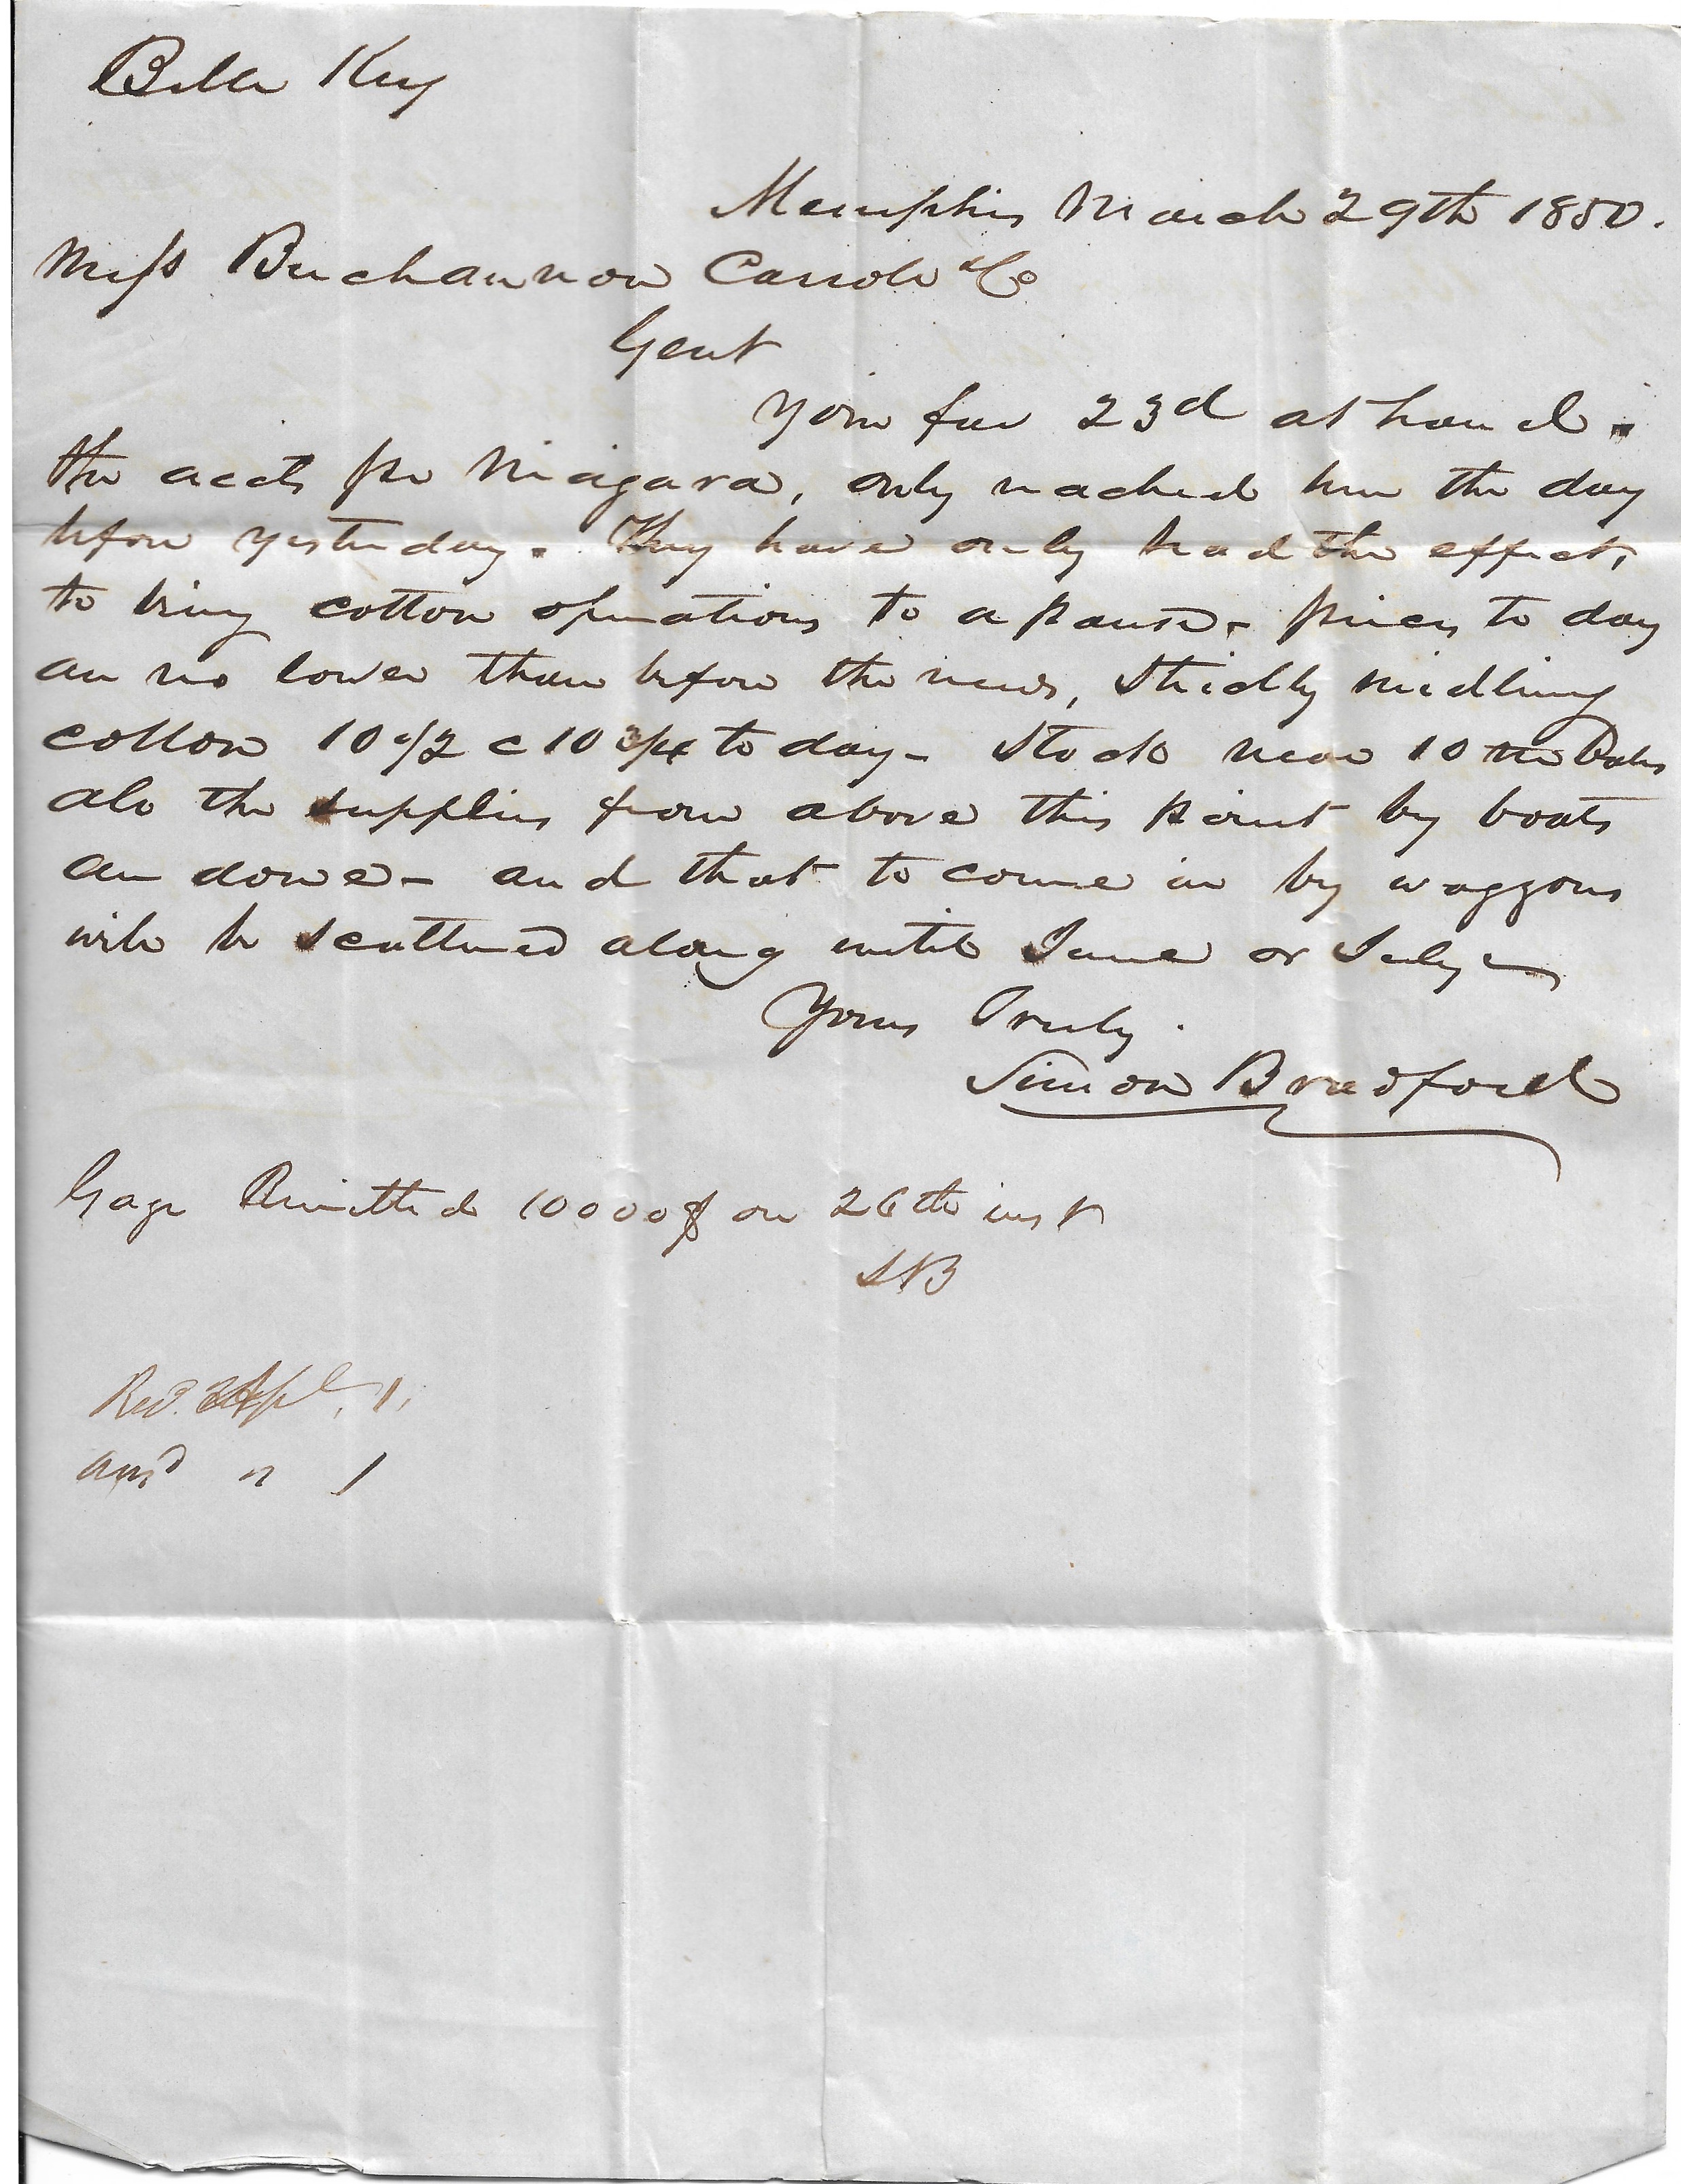 Belle Key
Memphis March 29th 1850.
Mess Buchannon Carroll & Co
Gent
Your fav 23d at hand.
the accts per Niagara, only reached here the day
before yesterday. They have only had the effect,
to bring cotton operations to a pause - prices to day
are no lower than before the news, Strictly midling
cotton 10 1/2 c 10 3/4 to day - Stock near 10 Bales
also the supplies from above this point by boats
are done - and that to come in by waggons
will be scattered along until June or July -
Yours Truly.
Simon Bradford
Gage Remitted 10000$ on 26th inst
SB
Recd Apl. 1.
Ansd " 1